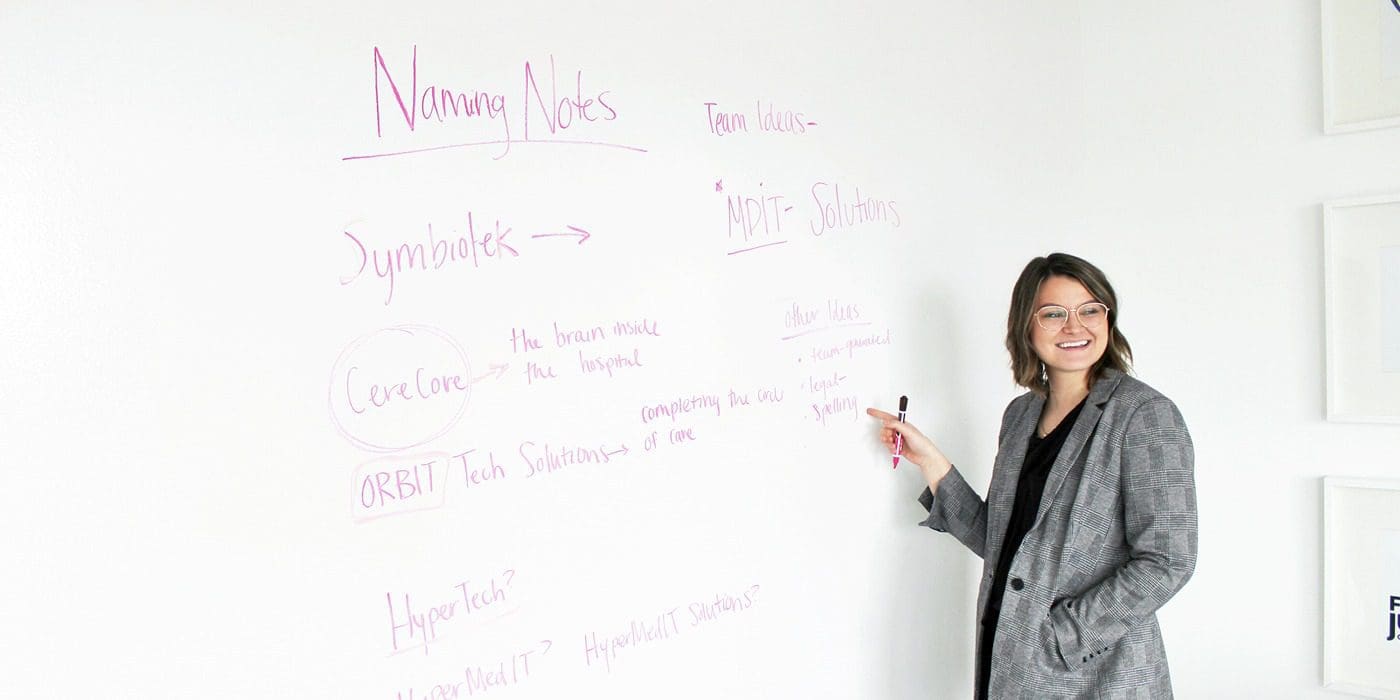 Naming Notes
Team Ideas-
Symbiotek →
*MDIT- Solutions
CereCore →
the brain inside
the hospital
ORBIT Tech Solutions →
completing the circle
of care
other Ideas
• team-
• legal-
• spelling
HyperTech?
HyperMedIT?
HyperMedIT Solutions?